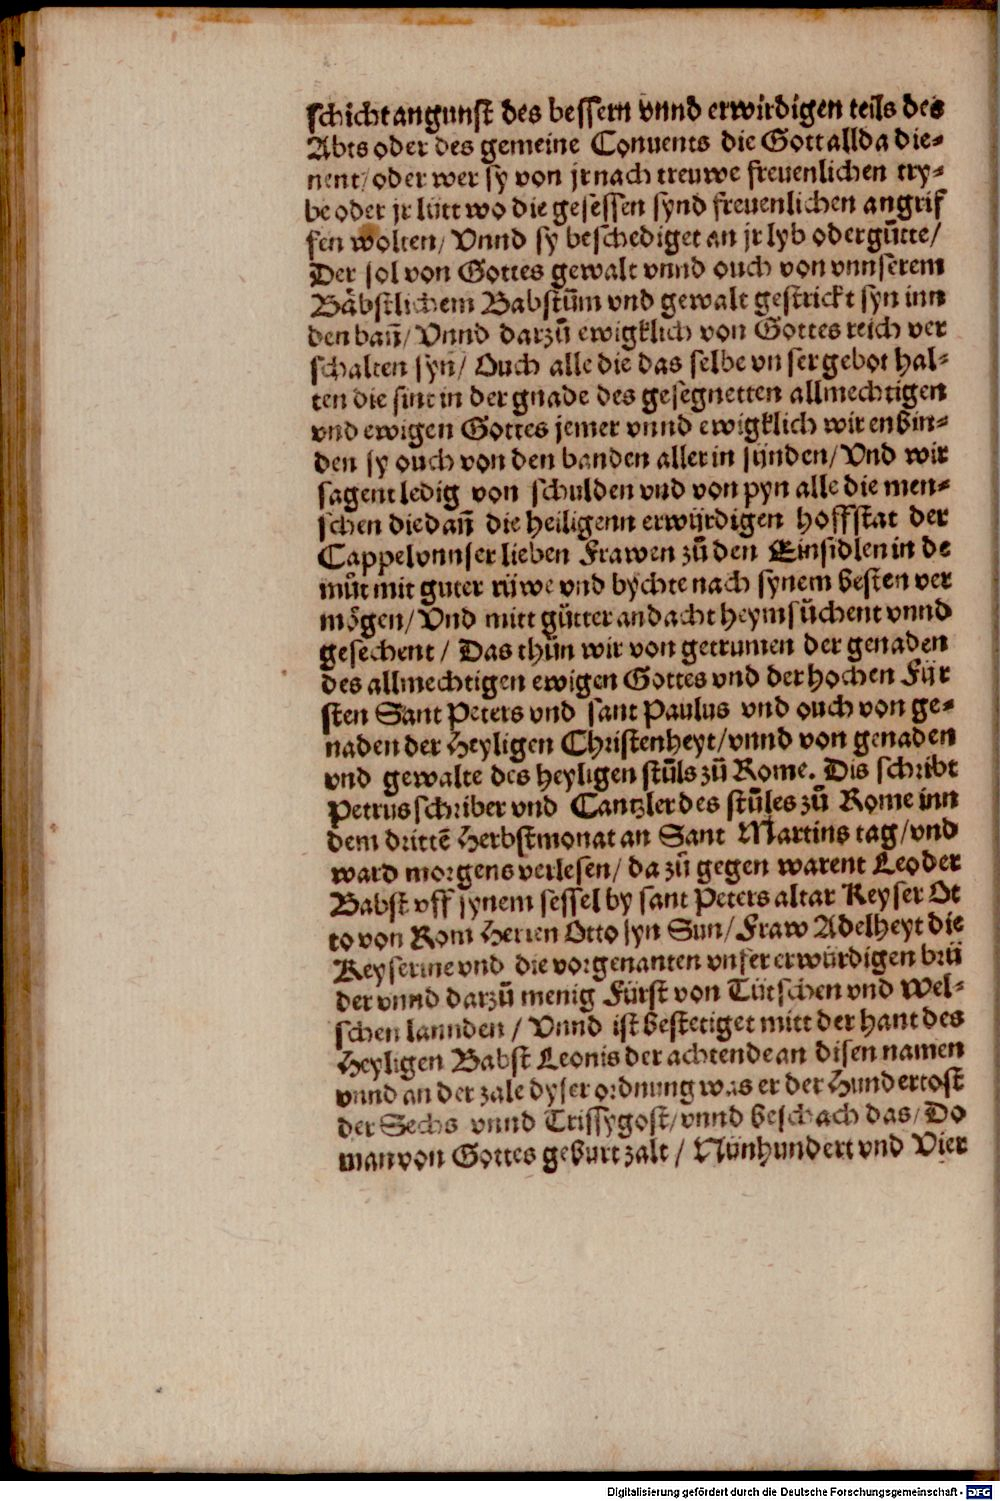 schicht an gunst des bessern vnnd erwirdigen teils des
Abts oder des gemeine Conuents die Gott allda die-
nent/ oder wer sy von jr nach treuwe freuenlichen try-
be oder jr lütt wo die gesessen synd freuenlichen angrif
fen wolten/ Vnnd sy beschediget an jr lyb oder gůtte/
Der sol von Gottes gewalt vnnd ouch von vnnserem
Bäbstlichem Babstům vnd gewalt gestrickt syn inn
den bañ/ Vnnd darzů ewigklich von Gottes reich ver
schalten syn/ Ouch alle die das selbe vnser gebot hal-
ten die sint in der gnade des gesegnetten allmechtigen
vnd ewigen Gottes jemer vnnd ewigklich wir enbin-
den sy ouch von den banden aller in sünden/ Vnd wir
sagent ledig von schulden vnd von pyn alle die men-
schen die dañ die heiligenn erwijrdigen hoffstat der
Cappel vnnser lieben Frawen zů den Einsidlen in de
můt mit guter rüwe vnd bychte nach synem besten ver
mögen/ Vnd mitt gůtter andacht heymsůchent vnnd
gesechent / Das thůn wir von getrumen der genaden
des allmechtigen ewigen Gottes vnd der hochen Fijr
sten Sant Peters vnd sant Paulus vnd ouch von ge-
naden der Heyligen Christenheyt/ vnnd von genaden
vnd gewalte des heyligen stůls zů Rome. Dis schribt
Petrus schriber vnd Cantzler des stůles zů Rome inn
dem drittē Herbstmonat an Sant Martins tag/ vnd
ward morgens verlesen/ da zů gegen warent Leo der
Babst vff synem sessel by sant Peters altar Keyser Ot
to von Rom Herren Otto syn Sun/ Fraw Adelheyt die
Keyserine vnd die vorgenanten vnser erwürdigen brü
der vnnd darzů menig Fürst von Tütschen vnd Wel-
schen lannden / Vnnd ist bestetiget mitt der hant des
Heyligen Babst Leonis der achtende an disen namen
vnnd an der zale dyser ordnung was er der Hundertost
der Sechs vnnd Trissygost/ vnnd beschach das/ Do
man von Gottes geburt zalt / Nünhundert vnd Vier
Digitalisierung gefördert durch die Deutsche Forschungsgemeinschaft - DFG